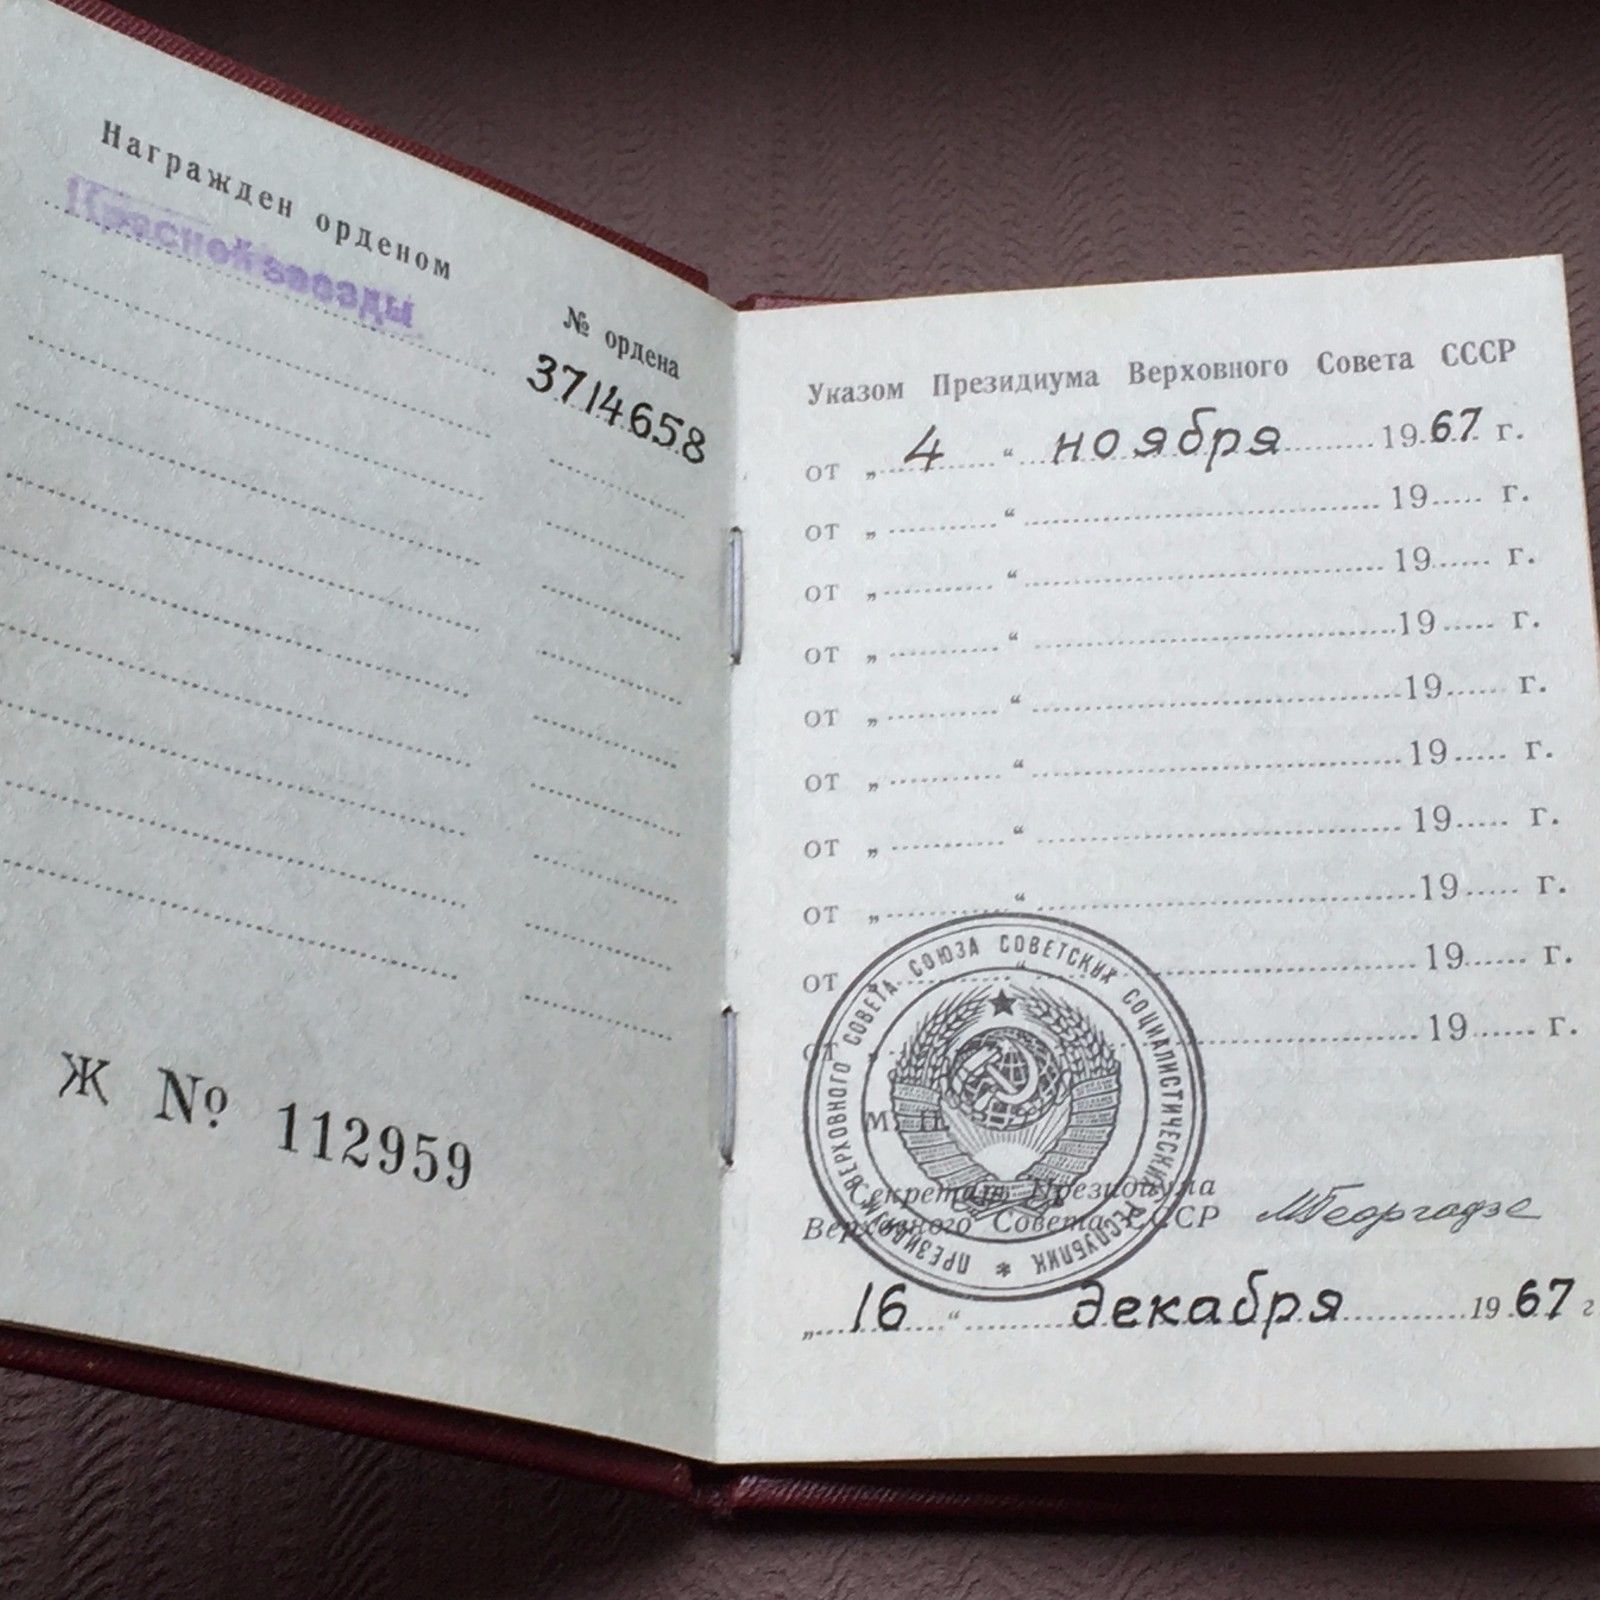 Награжден орденом
Красной звезды
№ ордена
3714658
Ж № 112959
Указом Президиума Верховного Совета СССР
от „ 4 “ ноября 1967 г.
от „ “ 19 г.
от „ “ 19 г.
от „ “ 19 г.
от „ “ 19 г.
от „ “ 19 г.
от „ “ 19 г.
от „ “ 19 г.
от „ “ 19 г.
от „ “ 19 г.
М. П.
ПРЕЗИДИУМ ВЕРХОВНОГО СОВЕТА СОЮЗА СОВЕТСКИХ СОЦИАЛИСТИЧЕСКИХ РЕСПУБЛИК *
Секретарь Президиума
Верховного Совета СССР МГеоргадзе
„ 16 “ декабря 1967 г